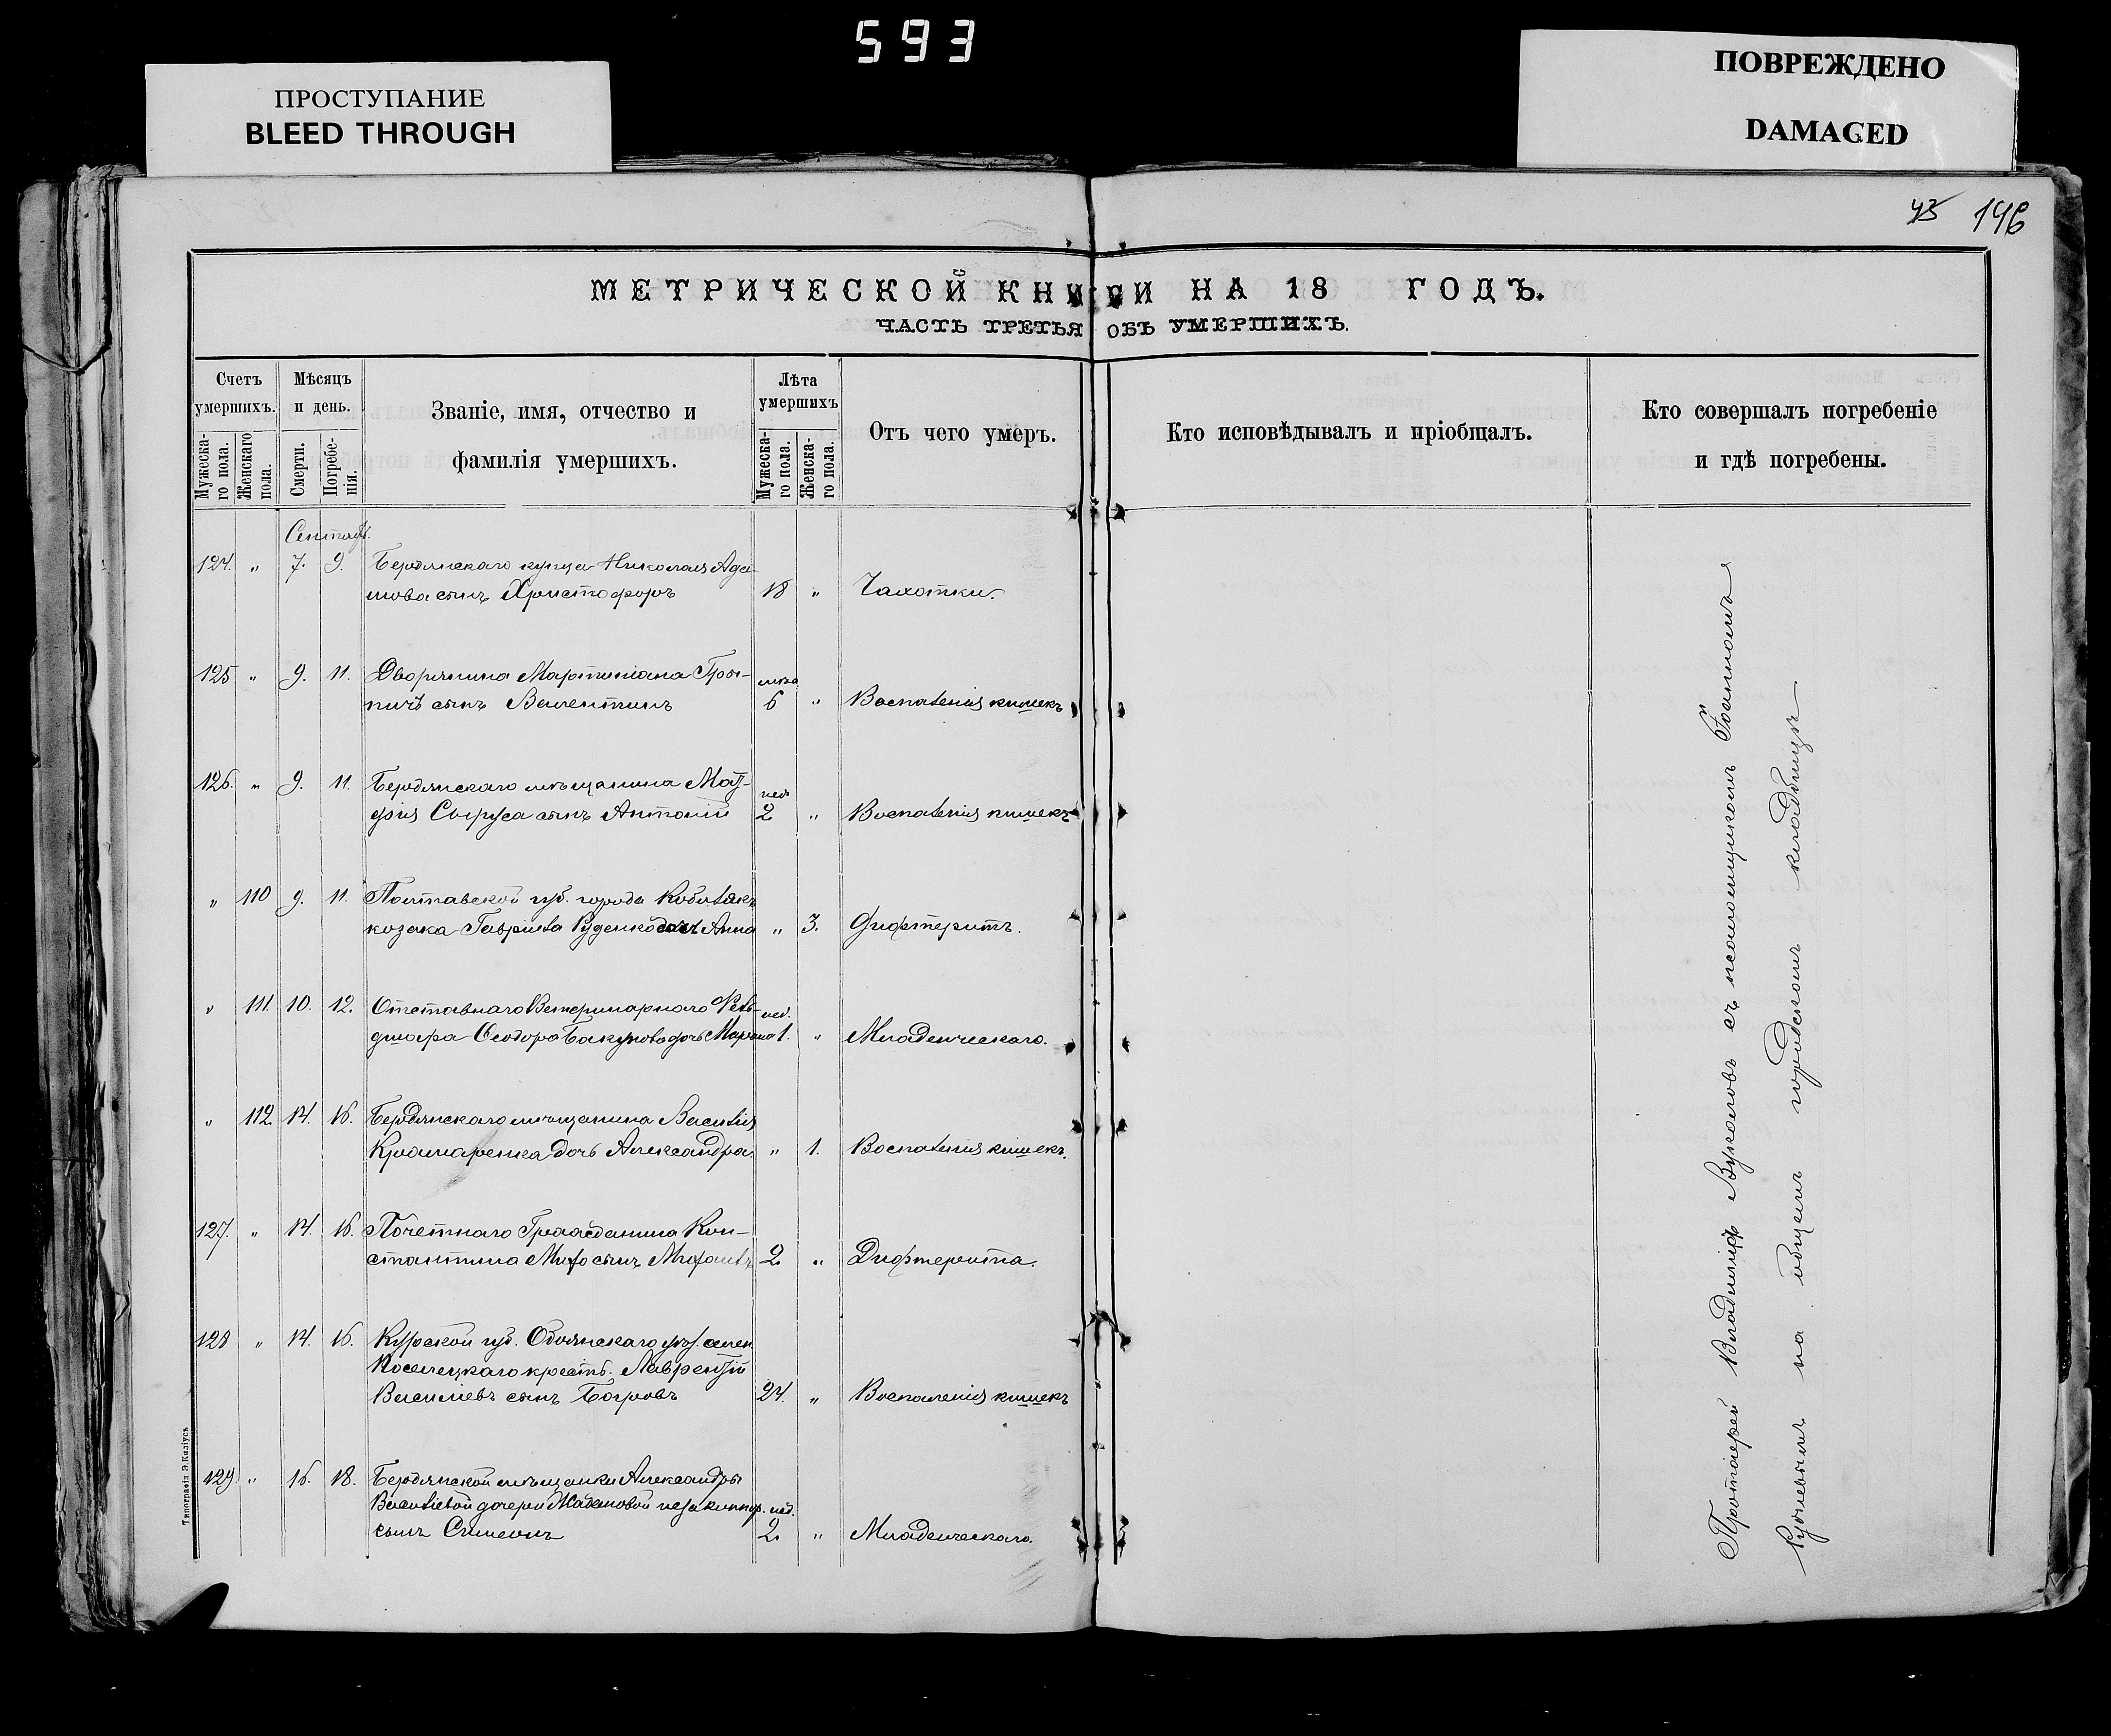 593
ПРОСТУПАНИЕ
BLEED THROUGH
ПОВРЕЖДЕНО
DAMAGED
43 146
МЕТРИЧЕСКОЙ КНИГИ НА 18 ГОДЪ.
ЧАСТЬ ТРЕТЬЯ ОБЪ УМЕРШИХЪ.
Счетъ умершихъ.
Мужескаго пола.
Женскаго пола.
Мѣсяцъ и день.
Смерти.
Погребенія.
Званіе, имя, отчество и
фамилія умершихъ.
Лѣта умершихъ
Мужескаго пола.
Женскаго пола.
Отъ чего умеръ.
Кто исповѣдывалъ и пріобщалъ.
Кто совершалъ погребеніе
и гдѣ погребены.
Сентябр.
124. „ 7. 9. Бердянскаго купца Николая Ада-
мова сынъ Христофоръ 18 „ Чахотки.
125 „ 9. 11. Дворянина Мартиніана
сынъ Валентинъ 6 „ Воспаленія кишекъ
126. „ 9. 11. Бердянскаго мѣщанина Мат-
фія Сыруса сынъ Антоній 2 „ Воспаленія кишекъ
„ 110 9. 11. Полтавской губ. города Кобылякъ
козака Гавріила Руденко дочь Анна „ 3. Дифтеритъ.
„ 111. 10. 12. Отставнаго Ветеринарнаго Фель- нед.
дшера Ѳеодора Бакунова дочь 1. „ Младенческаго.
„ 112. 14. 16. Бердянскаго мѣщанина Василія
Крамаренка дочь Александра „ 1. Воспаленія кишекъ.
127. „ 14. 16. Почетнаго Гражданина Кон-
стантина сынъ 2. „ Дифтерита.
128 „ 14. 16. Курской губ. Обоянскаго уѣз. селен.
крестьян. Лаврентій
Василіевъ сынъ Багровъ 24. „ Воспаленія кишекъ
129. „ 16. 18. Бердянской мѣщанки Александры
Василіевой дочери незаконнор. нед.
сынъ Симеонъ 2. „ Младенческаго.
Протоіерей Владиміръ Вуколовъ съ псаломщикомъ
на общемъ городскомъ кладбищѣ
Типографія Э. Киліусъ